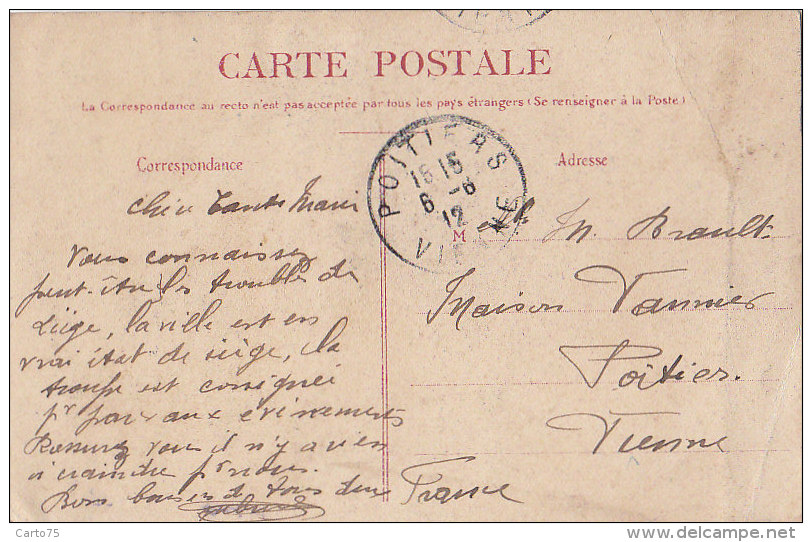 CARTE POSTALE
La Correspondance au recto n'est pas acceptée par tous les pays étrangers (Se renseigner à la Poste)
Correspondance
Chère Tante Marie
Vous connaissez
peut-être les troubles de
Liège, la ville est en
vrai état de siège, la
troupe est consignée
pr parer aux évènements
Rassurez vous il n'y a rien
à craindre pr nous.
Bons baisers de tous deux
POITIERS
16 15
6 -6
12
VIENNE
Adresse
M
M. Brault
Maison Vannier
Poitiers.
Vienne
France
Carto75
www.delcampe.net